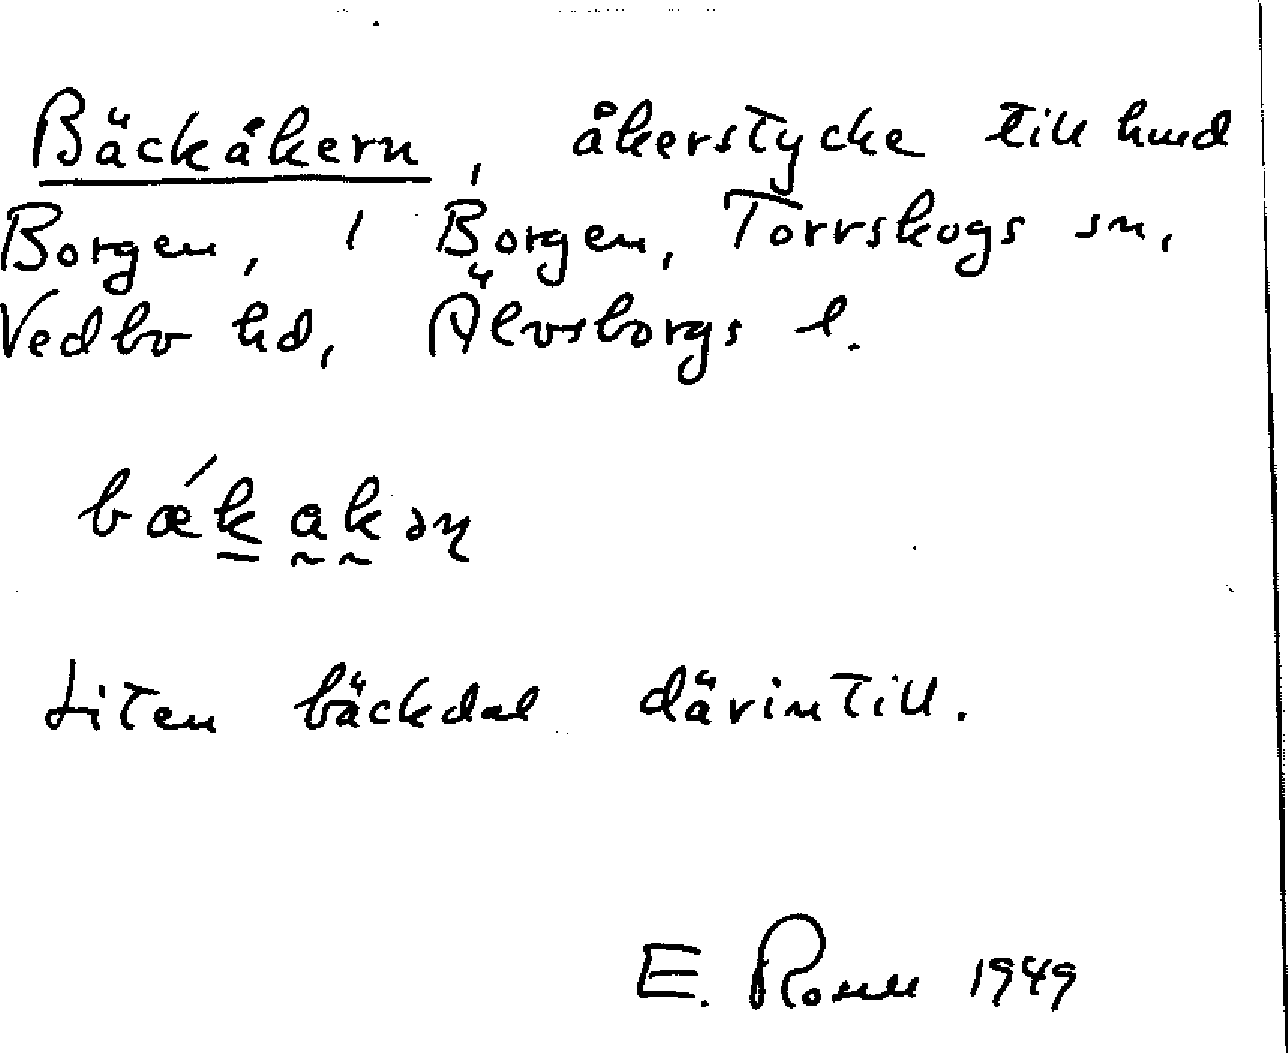 Bäckåkern, åkerstycke till hmd
Borgen, 1 Borgen, Torrskogs sn,
Vedbo hd, Älvsborgs l.
bǽkakəɳ
Liten bäckdal därintill.
E. Rosell 1949